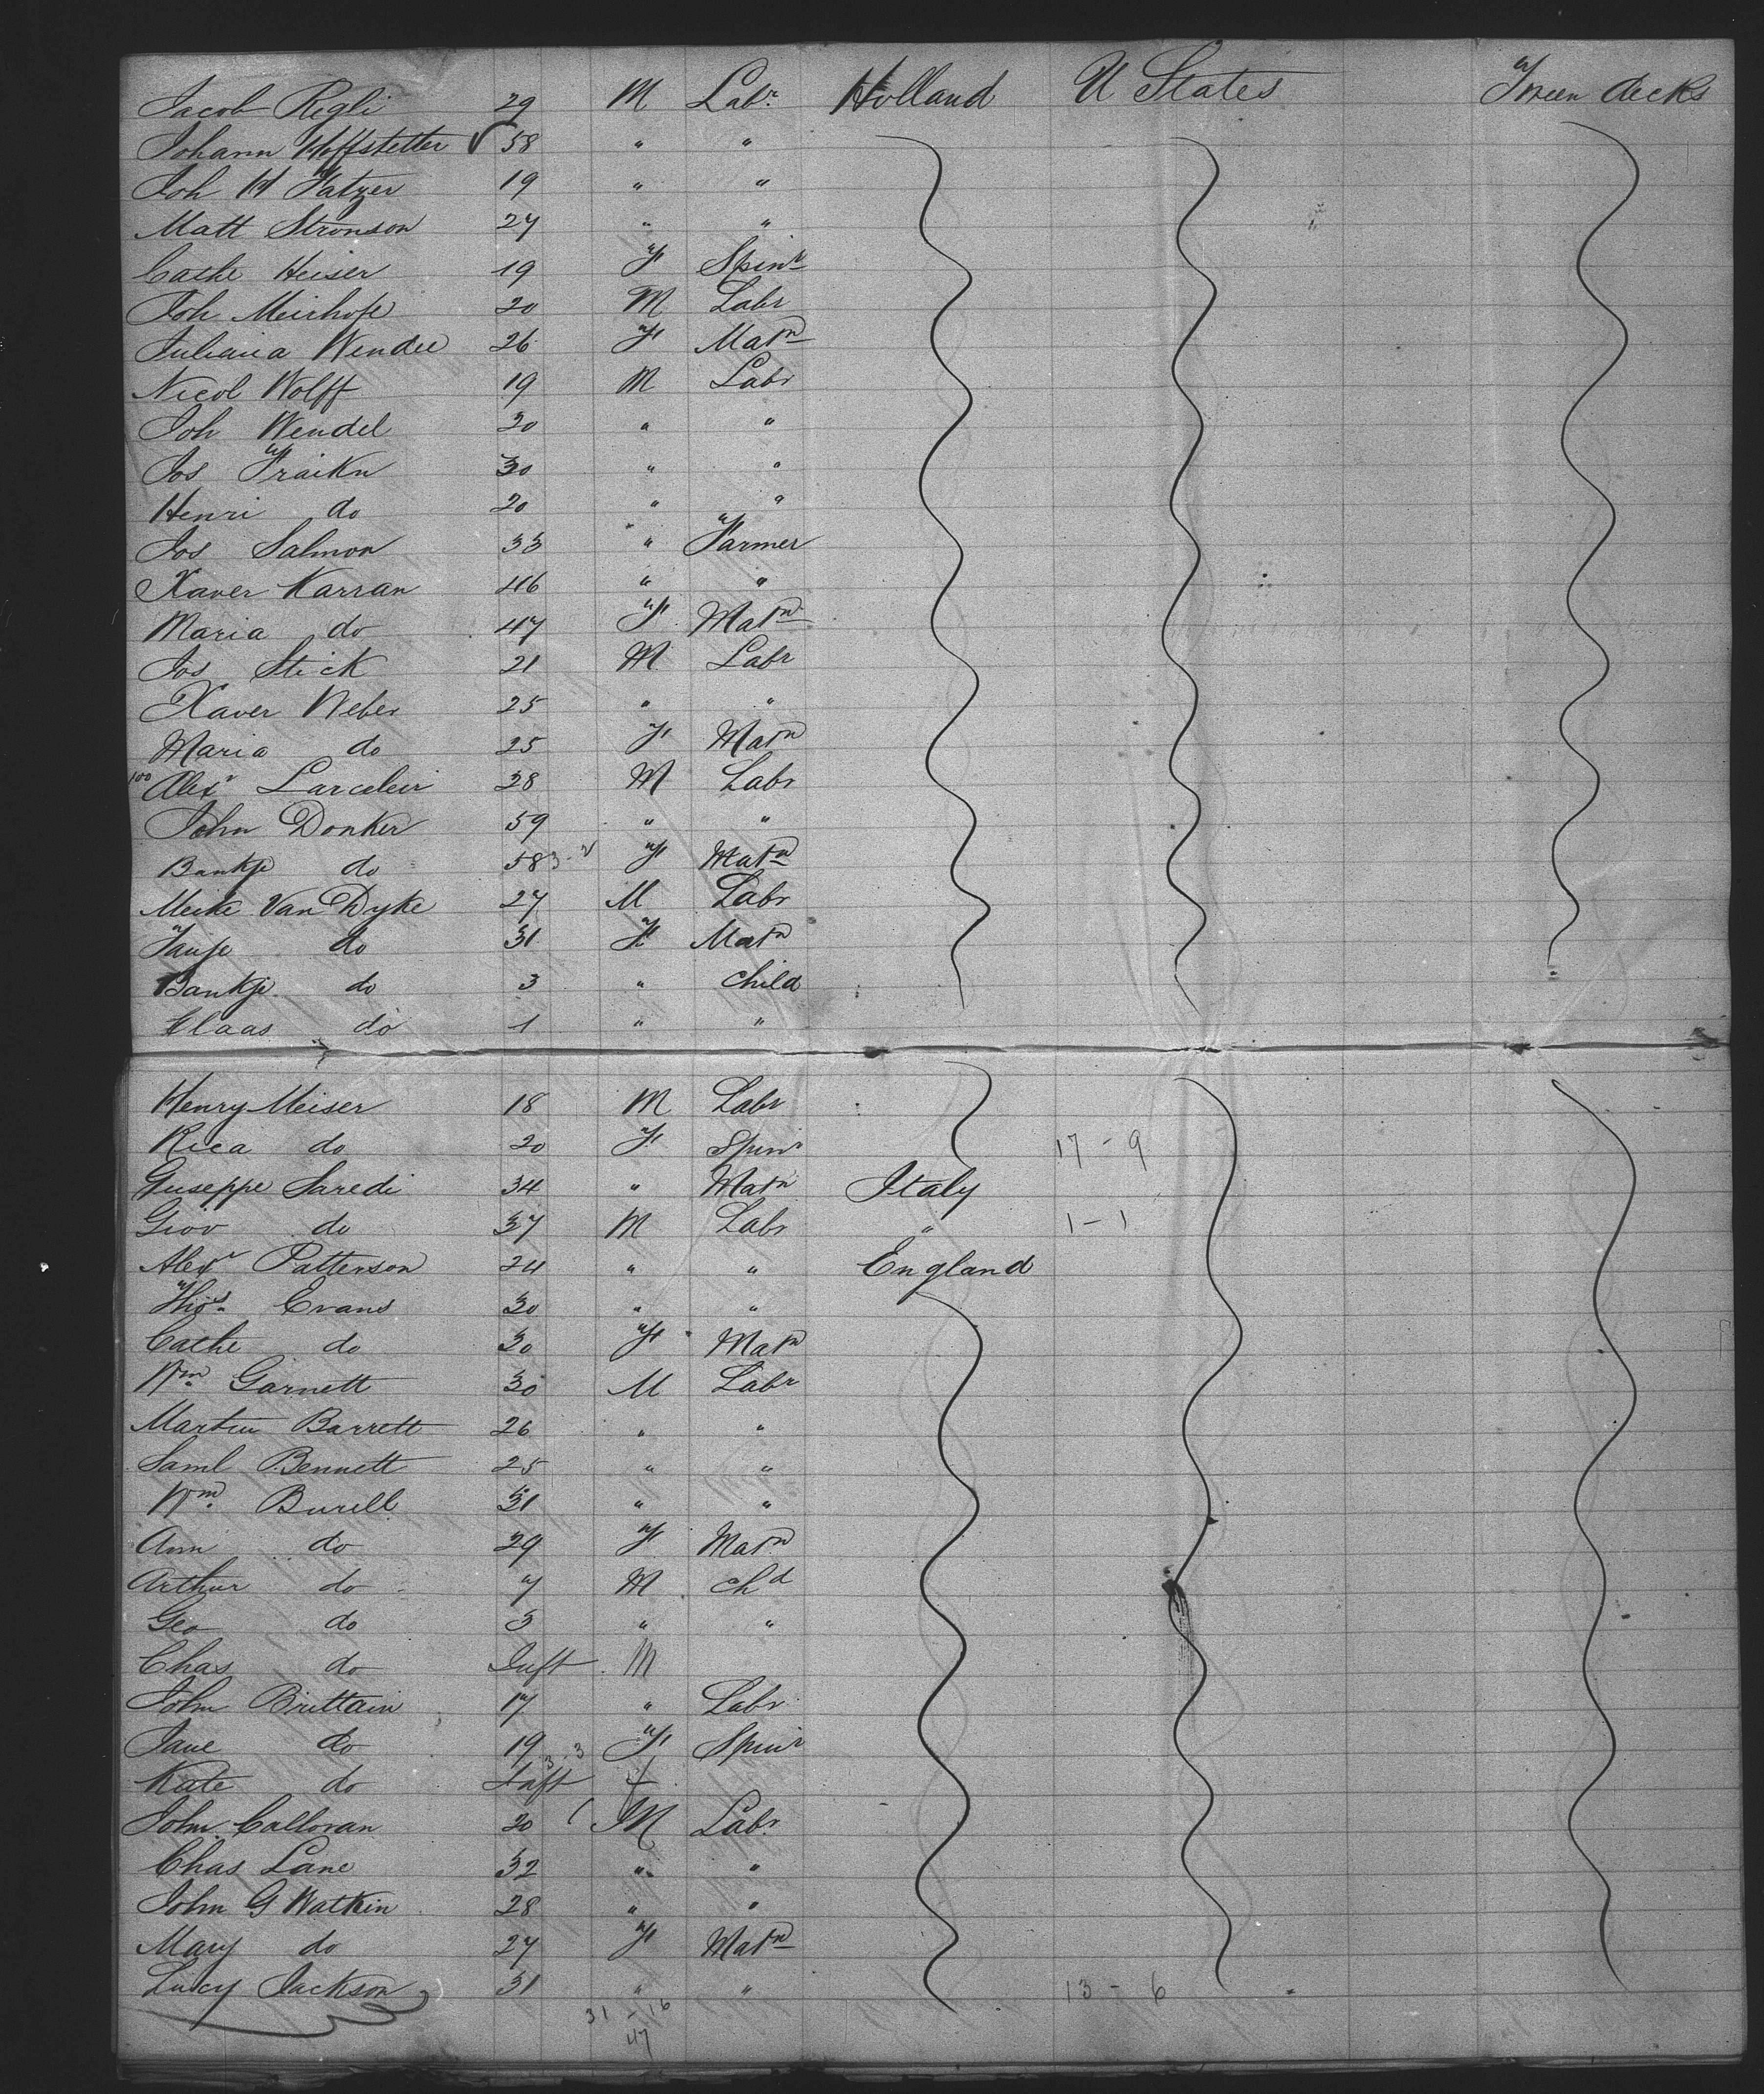 Jacob Regli 29 M Labr Holland U States Tween decks
Johann Hoffstetter 58 " "
Joh H Hatzer 19 " "
Matt Stronson 27 " "
Cathe Heiser 19 F Spinr
Joh Meirhofe 20 M Labr
Juliana Wendel 26 F Matn
Nicol Wolff 19 M Labr
Joh Wendel 20 " "
Jos Fraikn 30 " "
Henri do 20 " "
Jos Salmon 33 " Farmer
Xaver Karran 46 " "
Maria do 47 F Matn
Jos Stick 21 M Labr
Xaver Weber 25 " "
Maria do 25 F Matn
100 Alexr Larceleir 38 M Labr
John Donker 59 " "
Bankje do 58 F Matn
Meike Van Dyke 27 M Labr
do 31 F Matn
Bankje do 3 " child
Klaas do 1 " "
Henry Meiser 18 M Labr
Rica do 20 F Spinr 17 - 9
Guseppe Saredi 34 " Matn Italy
Giov do 37 M Labr " 1 - 1
Alexr Patterson 24 " " England
Thos Evans 30 " "
Cathe do 30 F Matn
Wm Garnett 30 M Labr
Martin Barrett 26 " "
Saml Bennett 25 " "
Wm Burell 31 " "
Ann do 29 F Matn
Arthur do 7 M chd
Geo do 3 " "
Chas do Inft M
John Brittain 17 " Labr
Jane do 19 F Spinr
3 - 3
Kate do Inft f
John Calloran 20 M Labr
Chas Lane 32 " "
John G Watkin 28 " "
Mary do 27 F Matn
Lucy Jackson 31 " " 13 - 6
31 - 16
47